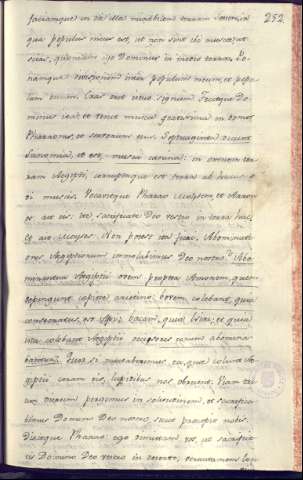 252
faciamque in die illa mirabilem terram Gessen, in
qua populus meus est, ut non sint ibi muscæ, et
scias, quoniam ego Dominus in medio terræ. Po-
namque divisionem inter populum meum, et popu-
lum tuum. Cras erit istud signum. Fecitque Do-
minus ita; et venit musca gravissima in domos
Pharaonis, et servorum ejus. Septuaginta
et ecce musca: in omnem ter-
ram Ægypti, corruptaque est terra ab hujusce-
di muscis. Vocavitque Pharao Moysen, et Aaron
et ait eis: ite, sacrificate Deo vestro in terra hac.
Et ait Moyses: Non potest ita fieri; Abominati-
ones Ægyptiorum immolabimus Deo nostro? Abo-
Ægyptii ovem propter Amonem, quem
capite arietino: bovem colebant, quia
consecratus est Apis: vacam, quia Isidi; et quia
ista colebant Ægyptii
Quod si mactaverimus ea, quæ colunt Æ-
gyptii coram eis, lapidibus nos obruent. Viam tri-
um dierum pergemus in solitudinem, et sacrifica-
bimus Domino Deo nostro, sicut præcepit nobis.
Dixitque Pharao: ego dimittam vos, ut sacrifice-
tis Domino Deo vestro in deserto; verumtamen lon-